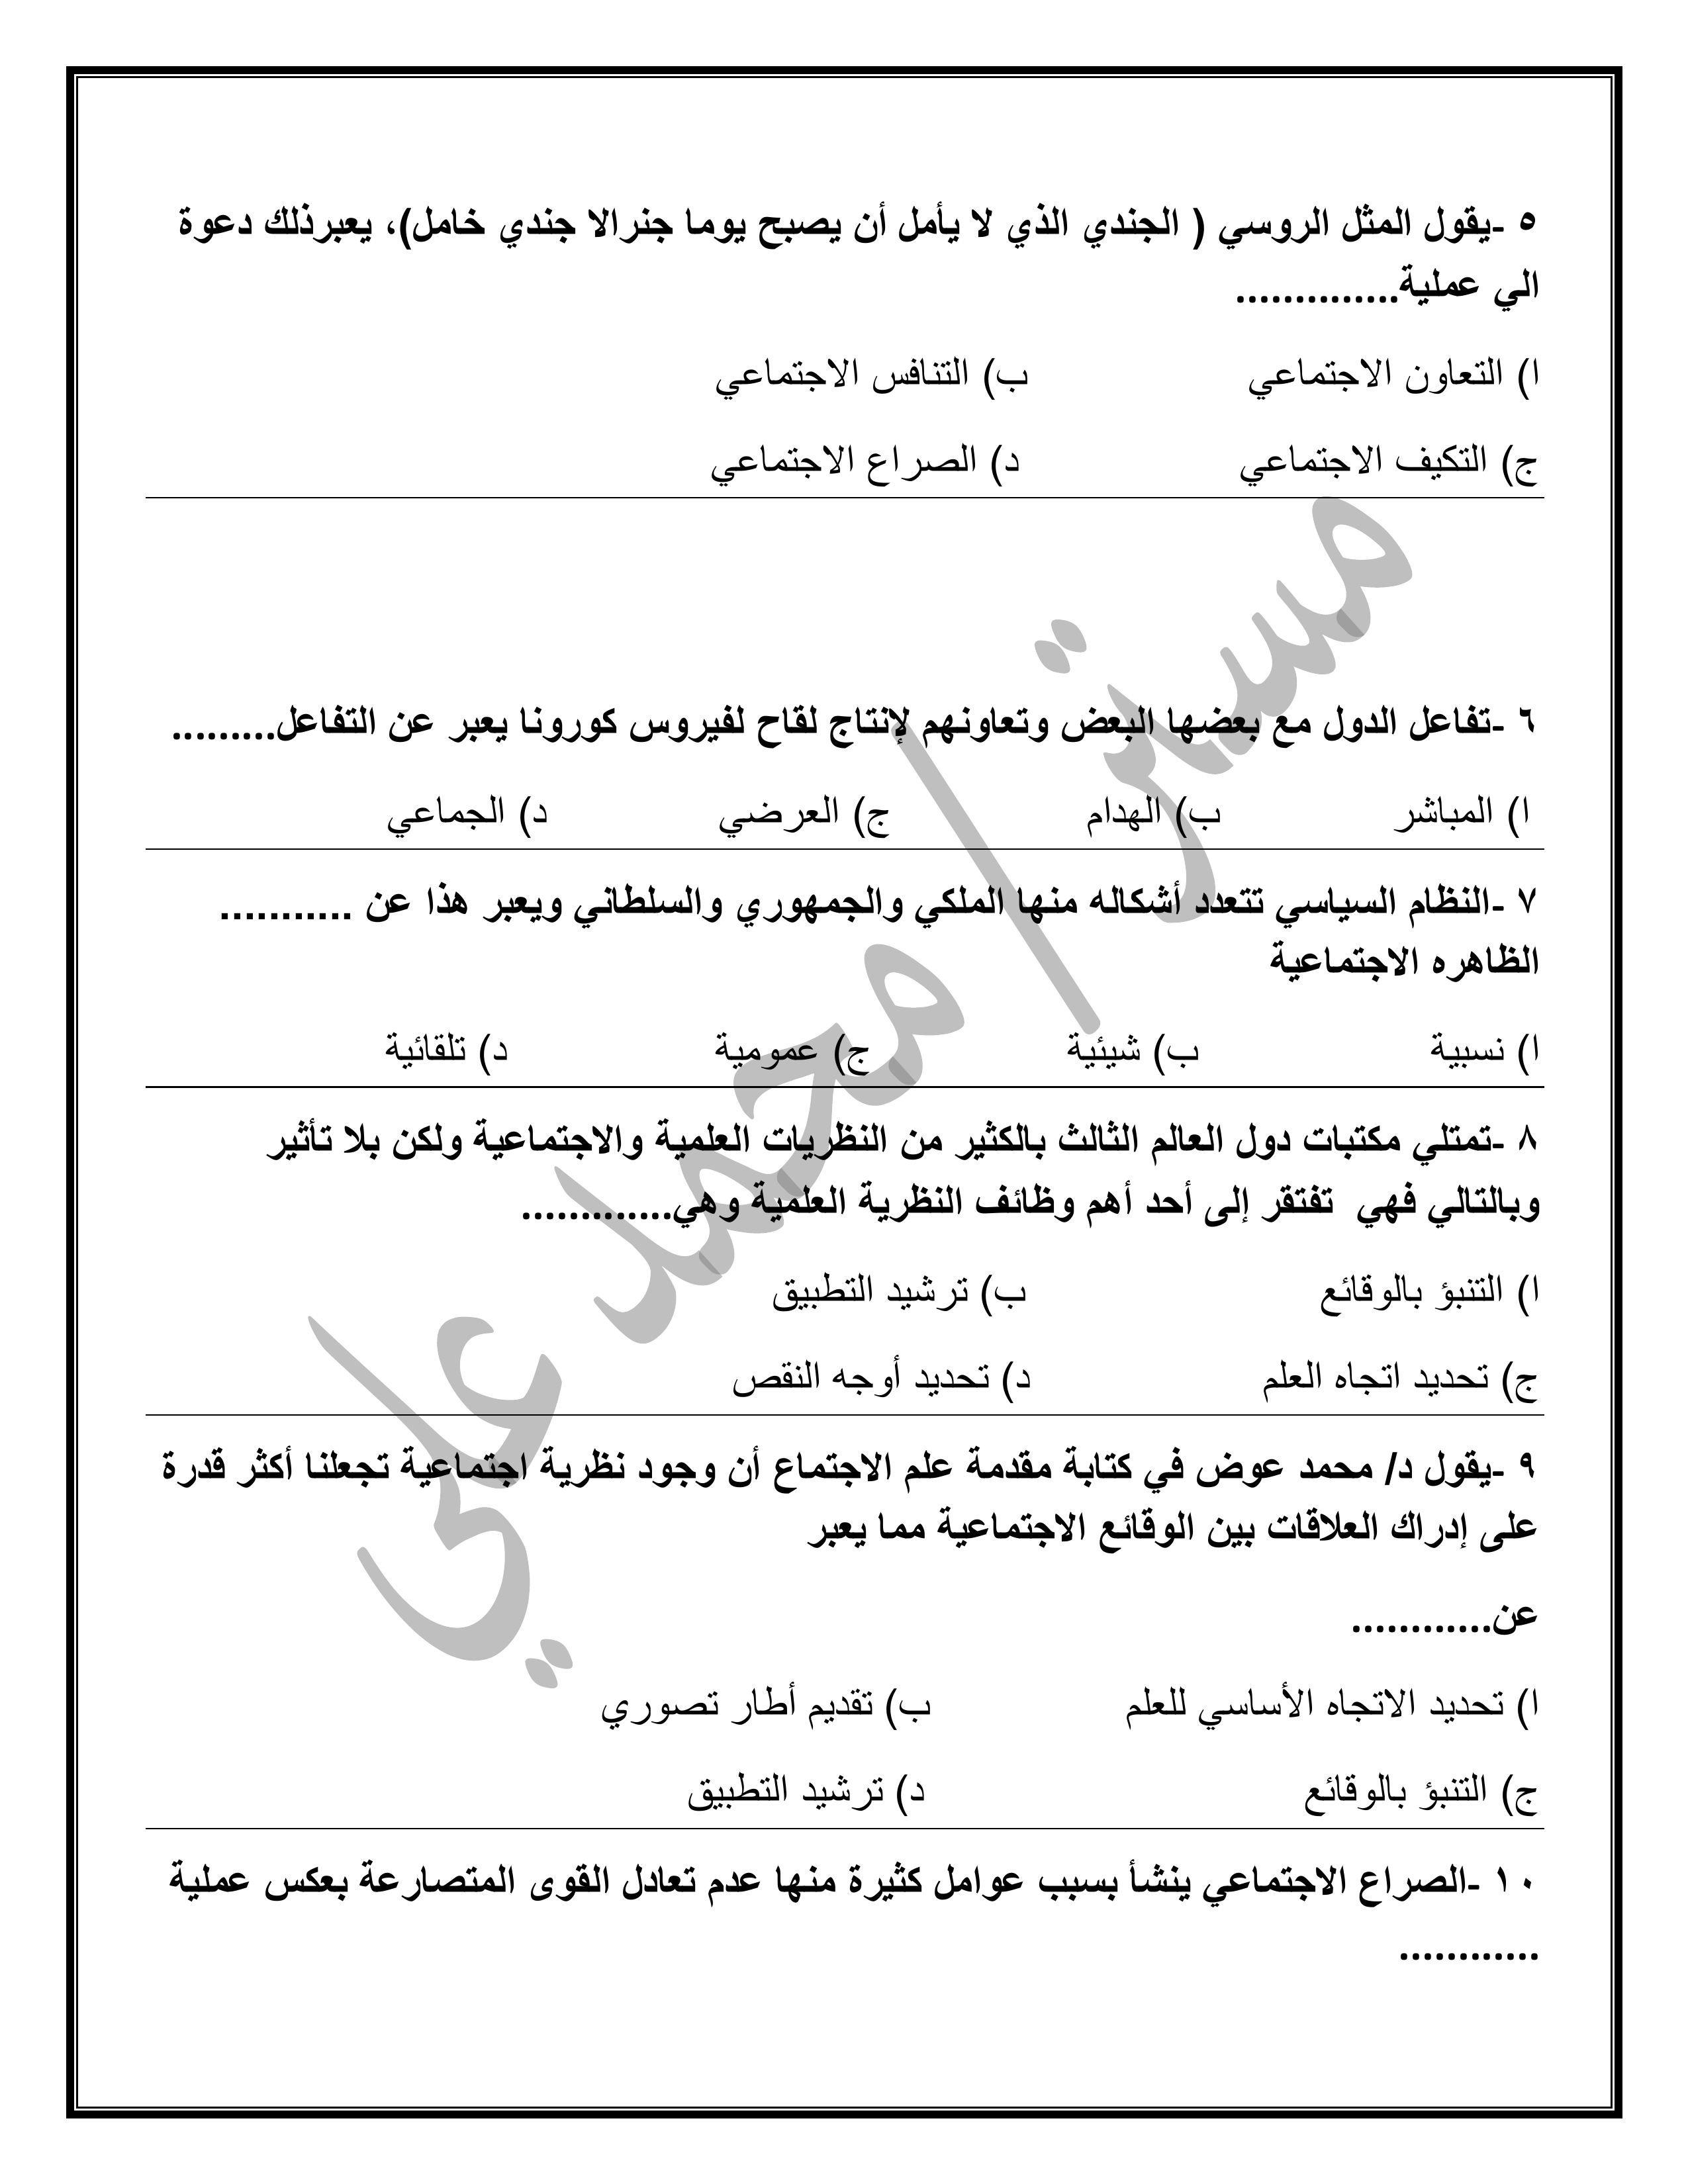 ٥ -يقول المثل الروسي ( الجندي الذي لا يأمل أن يصبح يوما جنرالا جندي خامل)، يعبرذلك دعوة
الي عملية..............
ا) التعاون الاجتماعي ب) التنافس الاجتماعي
ج) التكيف الاجتماعي د) الصراع الاجتماعي
٦ -تفاعل الدول مع بعضها البعض وتعاونهم لإنتاج لقاح لفيروس كورونا يعبر عن التفاعل.........
ا) المباشر ب) الهدام ج) العرضي د) الجماعي
٧ -النظام السياسي تتعدد أشكاله منها الملكي والجمهوري والسلطاني ويعبر هذا عن ...........
الظاهره الاجتماعية
ا) نسبية ب) شيئية ج) عمومية د) تلقائية
٨ -تمتلي مكتبات دول العالم الثالث بالكثير من النظريات العلمية والاجتماعية ولكن بلا تأثير
وبالتالي فهي تفتقر إلى أحد أهم وظائف النظرية العلمية وهي.............
ا) التنبؤ بالوقائع ب) ترشيد التطبيق
ج) تحديد اتجاه العلم د) تحديد أوجه النقص
٩ -يقول د/ محمد عوض في كتابة مقدمة علم الاجتماع أن وجود نظرية اجتماعية تجعلنا أكثر قدرة
على إدراك العلاقات بين الوقائع الاجتماعية مما يعبر
عن............
ا) تحديد الاتجاه الأساسي للعلم ب) تقديم أطار تصوري
ج) التنبؤ بالوقائع د) ترشيد التطبيق
١٠ -الصراع الاجتماعي ينشأ بسبب عوامل كثيرة منها عدم تعادل القوى المتصارعة بعكس عملية
............
مستر/ محمد علي